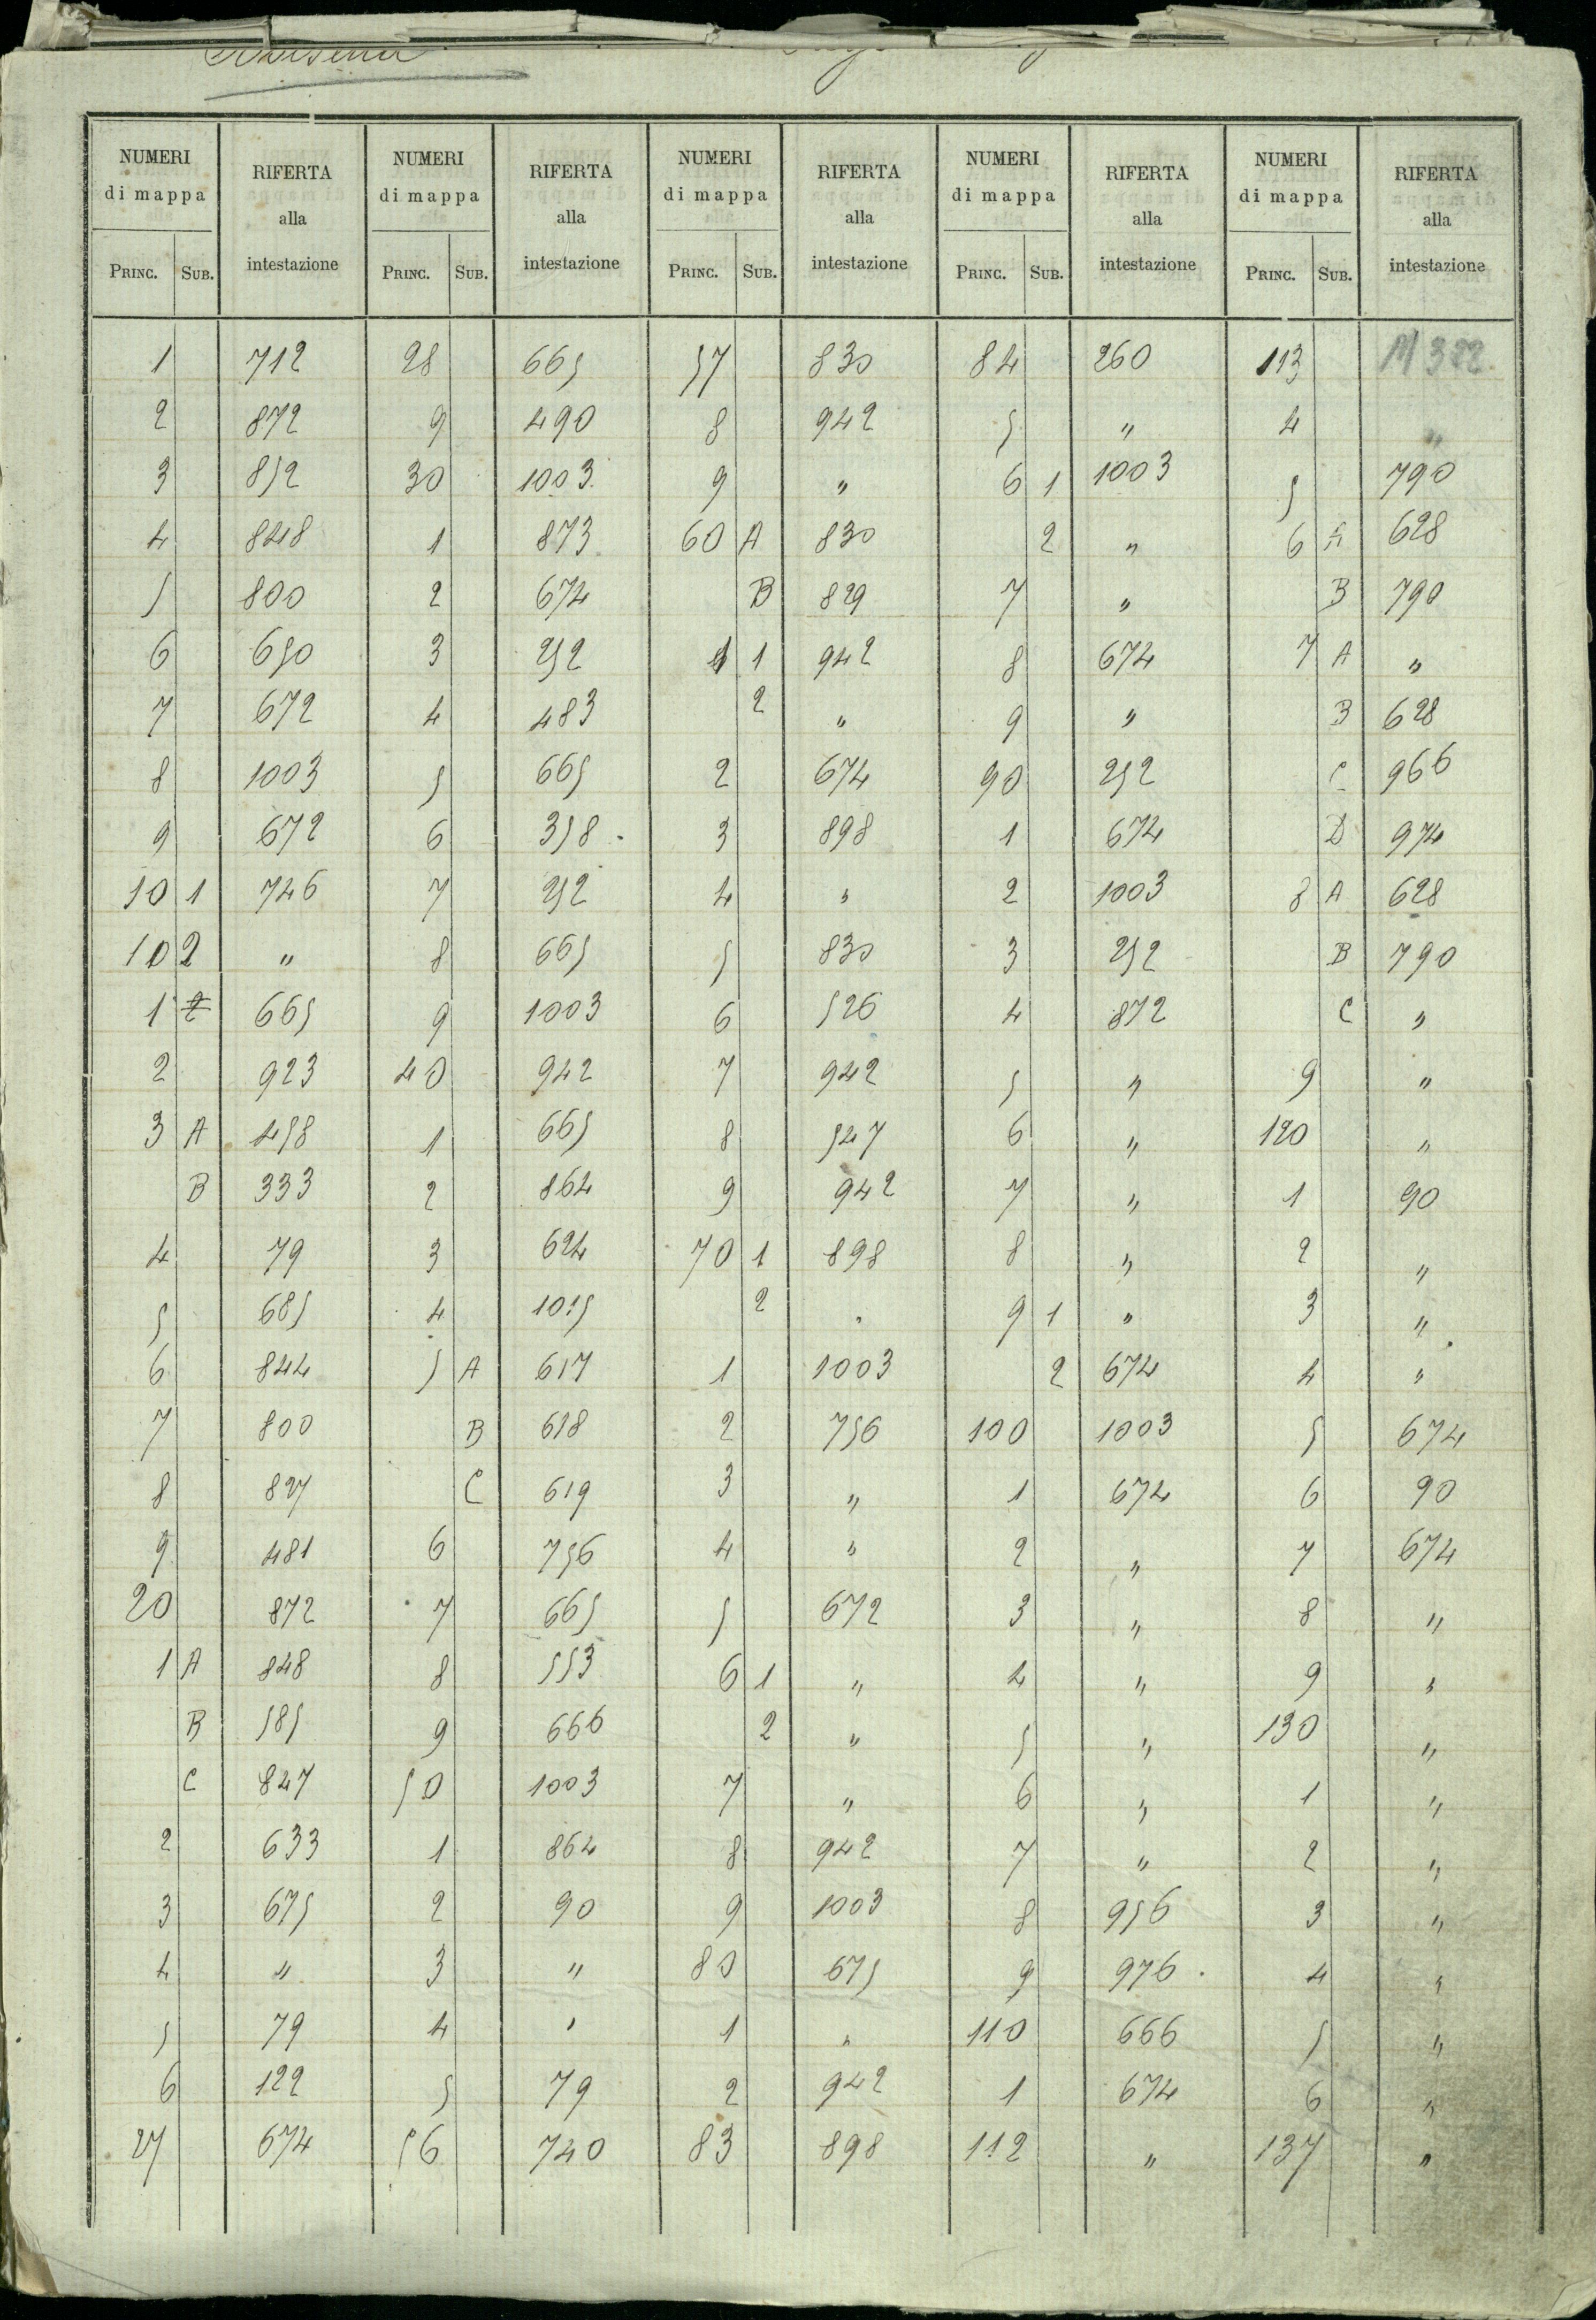 NUMERI di mappa RIFERTA alla intestazione NUMERI di mappa RIFERTA alla intestazione NUMERI di mappa RIFERTA alla intestazione NUMERI di mappa RIFERTA alla intestazione NUMERI di mappa RIFERTA alla intestazione
PRINC. SUB. PRINC. SUB. PRINC. SUB. PRINC. SUB. PRINC. SUB.
1 712 28 665 57 830 84 260 113 M 322
2 872 9 490 8 942 5 " 4 "
3 852 30 1003 9 " 6 1 1003 5 790
4 848 1 873 60 A 830 2 " 6 A 628
5 800 2 674 B 829 7 " B 790
6 650 3 252 1 1 942 8 674 7 A "
7 672 4 483 2 " 9 " B 628
8 1003 5 665 2 674 90 252 C 966
9 672 6 358 3 898 1 674 D 974
10 1 746 7 252 4 " 2 1003 8 A 628
10 2 " 8 665 5 830 3 252 B 790
1 665 9 1003 6 526 4 872 C "
2 923 40 942 7 942 5 " 9 "
3 A 458 1 665 8 547 6 " 120 "
B 333 2 864 9 942 7 " 1 90
4 79 3 624 70 1 898 8 " 2 "
5 685 4 1015 2 " 9 1 " 3 "
6 844 5 A 617 1 1003 2 674 4 "
7 800 B 618 2 756 100 1003 5 674
8 827 C 619 3 " 1 674 6 90
9 481 6 756 4 " 2 " 7 674
20 872 7 665 5 672 3 " 8 "
1 A 848 8 553 6 1 " 4 " 9 "
B 585 9 666 2 " 5 " 130 "
C 847 50 1003 7 " 6 " 1 "
2 633 1 864 8 942 7 " 2 "
3 675 2 90 9 1003 8 956 3 "
4 " 3 " 80 675 9 976 4 "
5 79 4 " 1 " 110 666 5 "
6 122 5 79 2 942 1 674 6 "
27 674 56 740 83 898 112 " 137 "